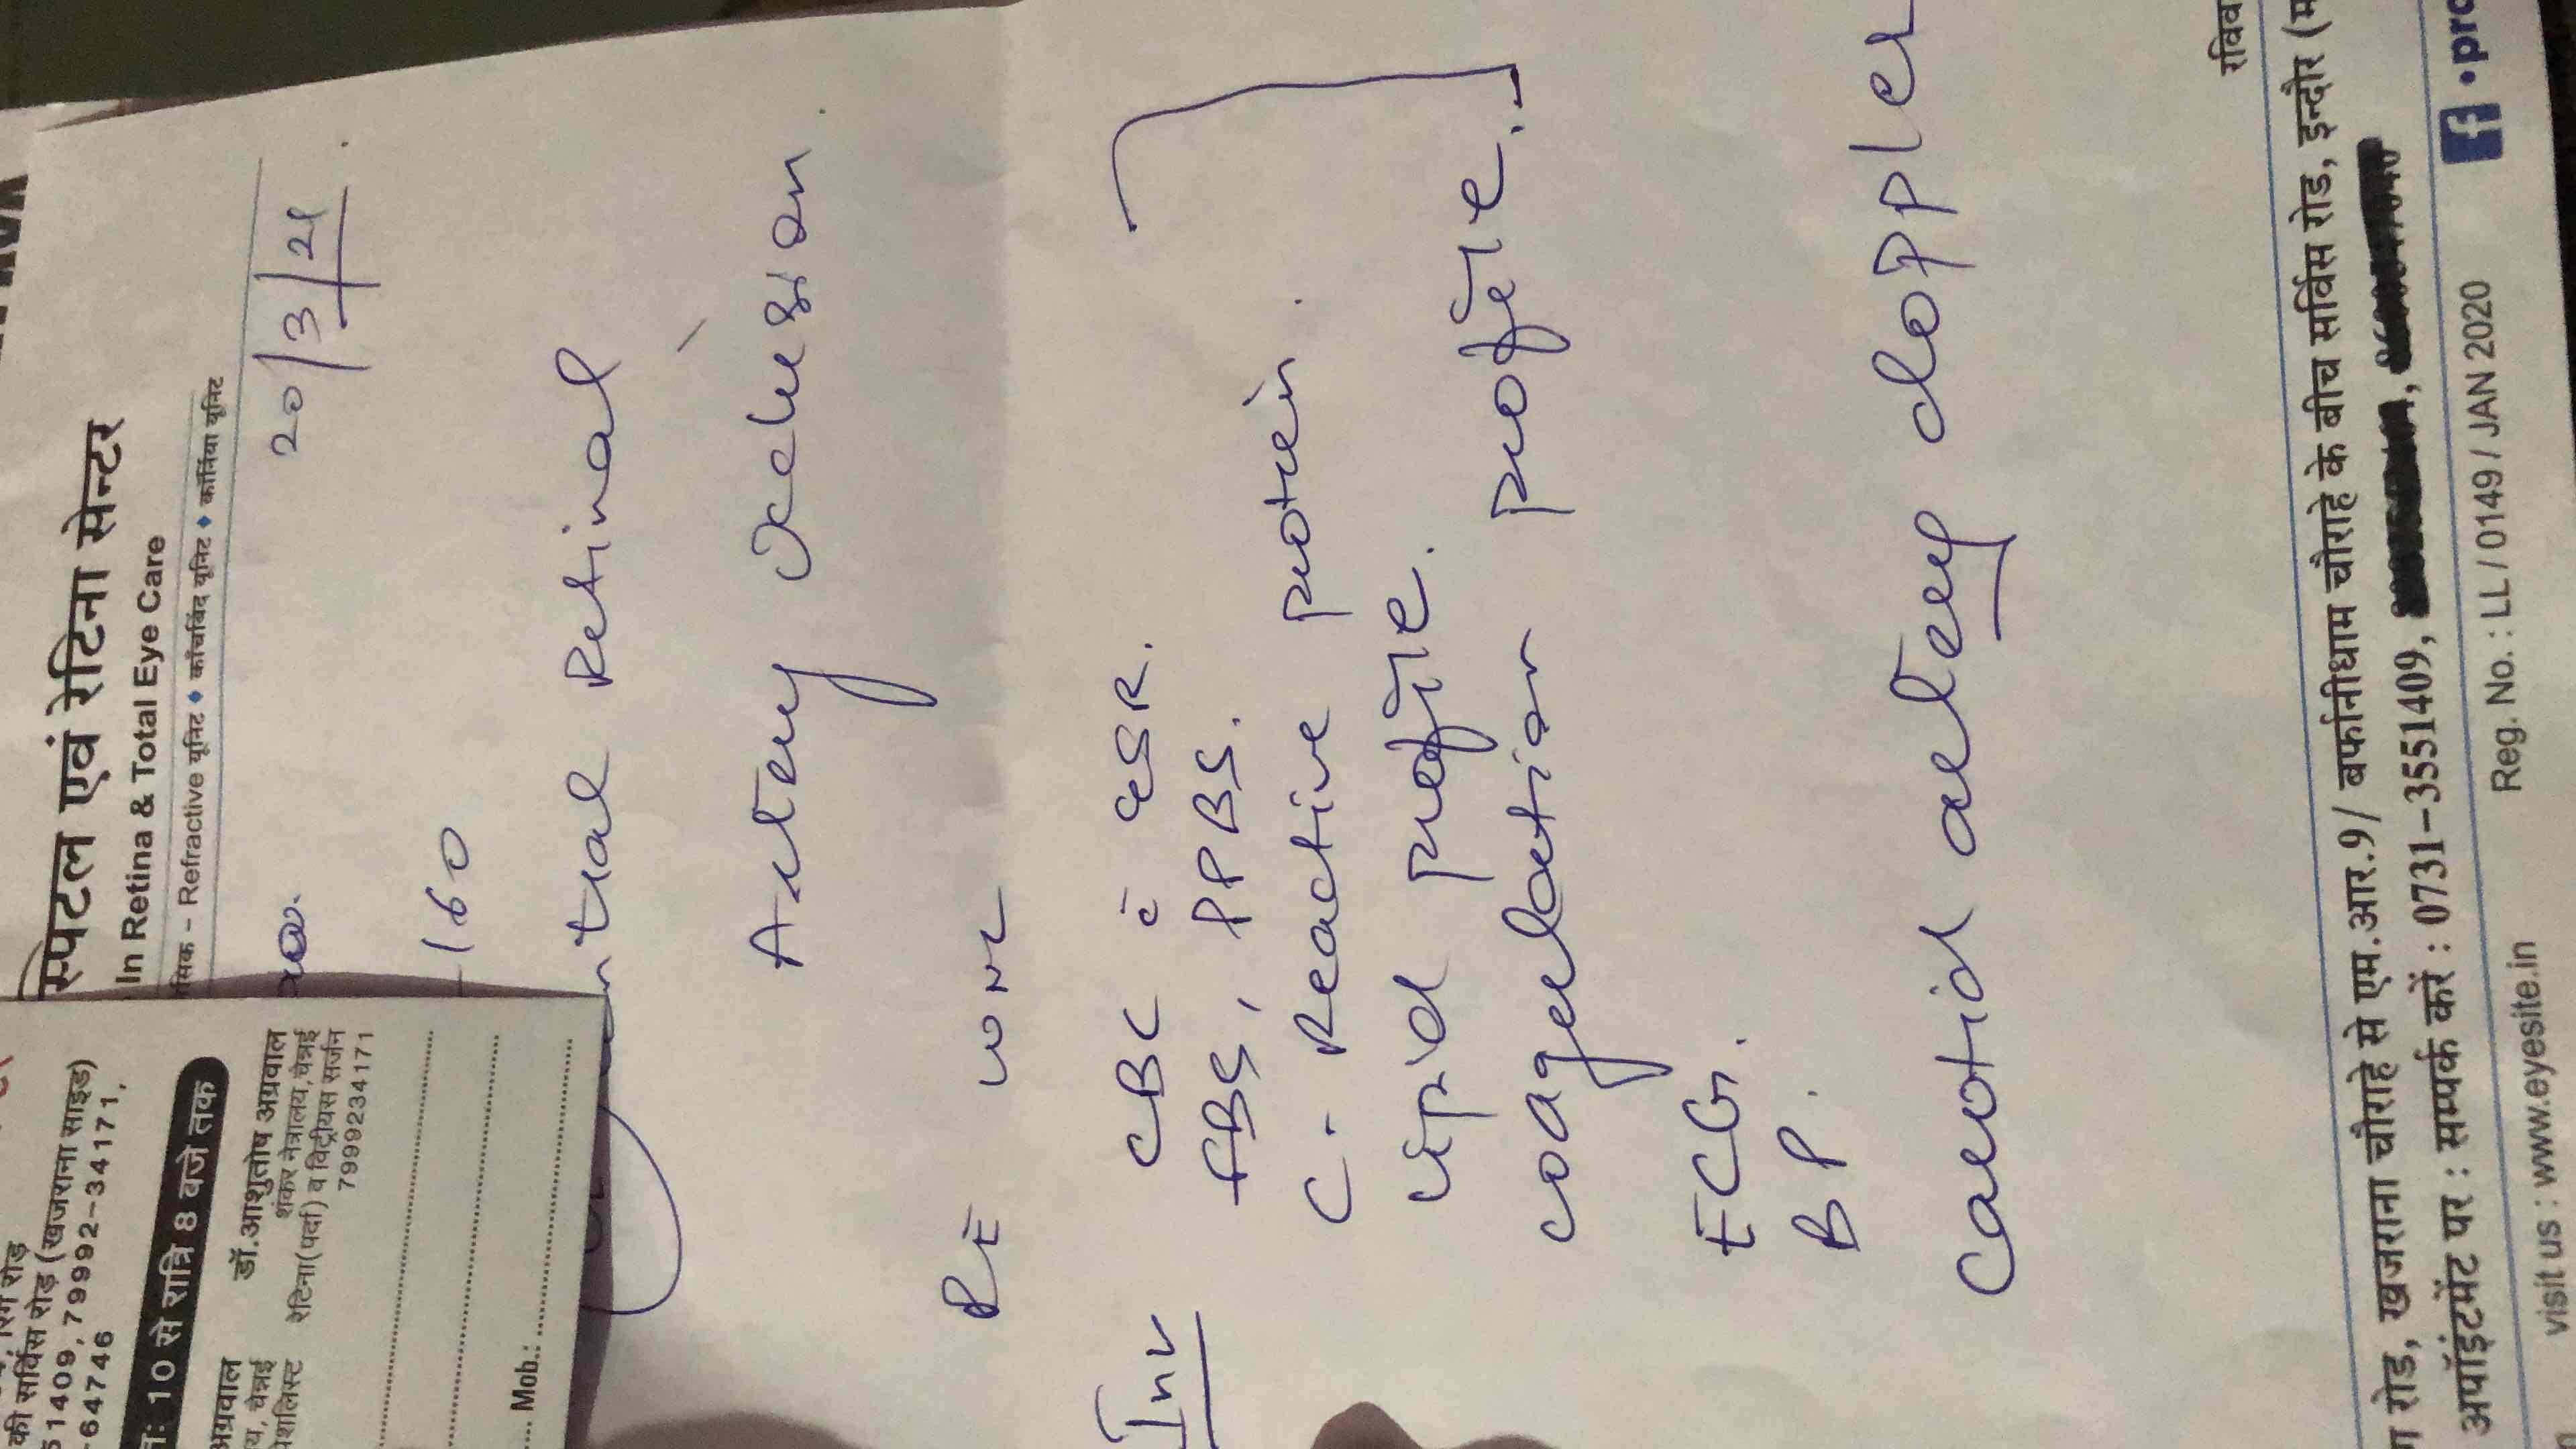 रिंग रोड़
की सर्विस रोड़ (खजराना साइड)
51409, 79992-34171,
-64746
10 से रात्रि 8 बजे तक
अग्रवाल
डॉ.आशुतोष अग्रवाल
चेन्नई
शंकर नेत्रालय,चेन्नई
रेटिना(पर्दा) व विट्रीयस सर्जन
7999234171
Mob.:
स्पिटल एवं रेटिना सेन्टर
In Retina & Total Eye Care
सिक - Refractive यूनिट ♦ काँचबिंद यूनिट ♦ कॉर्निया यूनिट
20/3/21
-160
ntral Retinal
Artery Occlusion.
RE WNL
Inv CBC c̄ ESR.
FBS, PPBS.
C- Reactive protein.
Lipid profile.
coagulation profile.
ECG.
BP.
Carotid artery doppler
रविव
ग रोड, खजराना चौराहे से एम.आर.9/ बर्फानीधाम चौराहे के बीच सर्विस रोड, इन्दौर (म
अपॉइंटमेंट पर : सम्पर्क करें : 0731-3551409,
visit us : www.eyesite.in
Reg. No. : LL / 0149 / JAN 2020
f •pro